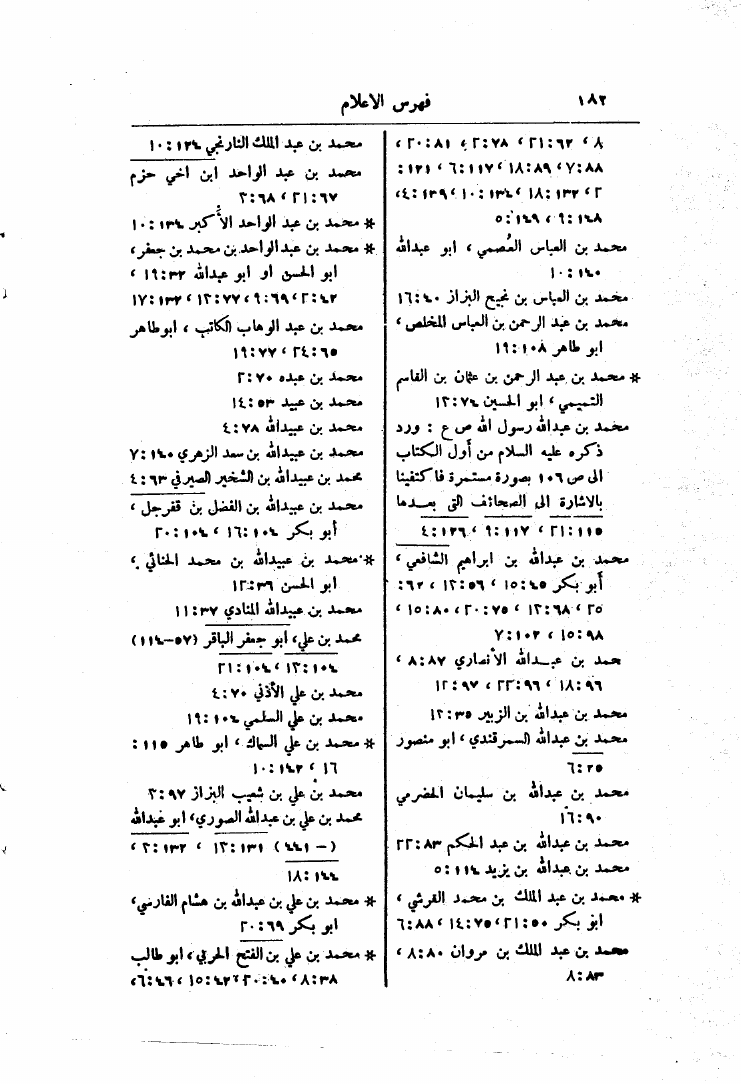 ١٨٢ فهرس الاعلام
٨ ، ٦٢ : ٢١ ، ٧٨ : ٢ ، ٨١ : ٢٠ ،
٨٨ : ٧ ، ٨٩ : ١٨ ، ١١٧ : ٦ ، ١٢١ :
٢ ، ١٣٢ : ١٨ ، ١٣٤ : ١٠ ، ١٣٩ : ٤ ،
١٤٨ : ٩ ، ١٤٩ : ٥
محمد بن العباس العُصمي ، ابو عبدالله
١٤٠ : ١٠
محمد بن العباس بن نجيح البزاز ٤٠ : ١٦
محمد بن عبد الرحمن بن العباس المخلص ،
ابو طاهر ١٠٨ : ١٩
* محمد بن عبد الرحمن بن عثمان بن القاسم
التميمي ، ابو الحسين ٧٤ : ١٢
محمد بن عبدالله رسول الله ص ع : ورد
ذكره عليه السلام من أول الكتاب
الى ص ١٠٦ بصورة مستمرة فاكتفينا
بالاشارة الى الصحائف التي بعدها
١١٥ : ٢١ ، ١١٧ : ٩ ، ١٢٦ : ٤
محمد بن عبدالله بن ابراهيم الشافعي ،
أبو بكر ٤٥ : ١٥ ، ٥٦ : ١٢ ، ٦٢ :
٢٥ ، ٦٨ : ١٢ ، ٧٥ : ٢٠ ، ٨٠ : ١٥ ،
٩٨ : ١٥ ، ١٠٢ : ٧
حمد بن عبدالله الأنصاري ٨٧ : ٨ ،
٩٦ : ١٨ ، ٩٦ : ٢٢ ، ٩٧ : ١٢
محمد بن عبدالله بن الزبير ٣٥ : ١٢
محمد بن عبدالله السمرقندي ، ابو منصور
٢٥ : ٦
محمد بن عبدالله بن سليمان الحضرمي
٩٠ : ١٦
محمد بن عبدالله بن عبد الحكم ٨٣ : ٢٢
محمد بن عبدالله بن يزيد ١١٤ : ٥
* محمد بن عبد الملك بن محمد القرشي ،
ابو بكر ٥٠ : ٢١ ، ٧٥ : ١٤ ، ٨٨ : ٦
محمد بن عبد الملك بن مروان ٨٠ : ٨ ،
٨٣ : ٨
محمد بن عبد الملك التارنجي ١٣٤ : ١٠
محمد بن عبد الواحد ابن اخي حزم
٦٧ : ٢١ ، ٦٨ : ٢
* محمد بن عبد الواحد الأكبر ١٣٤ : ١٠
* محمد بن عبد الواحد بن محمد بن جعفر ،
ابو الحسن او ابو عبدالله ٣٢ : ١٩ ،
٤٢ : ٢ ، ٦٩ : ٩ ، ٧٧ : ١٢ ، ١٣٢ : ١٧
محمد بن عبد الوهاب الكاتب ، ابو طاهر
٦٥ : ٢٤ ، ٧٧ : ١٩
محمد بن عبده ٧٠ : ٢
محمد بن عبيد ٥٣ : ١٤
محمد بن عبيدالله ٧٨ : ٤
محمد بن عبيدالله بن سعد الزهري ١٤٠ : ٧
محمد بن عبيدالله بن الشخير الصيرفي ٦٣ : ٤
محمد بن عبيدالله بن الفضل بن قفرجل ،
أبو بكر ١٠٤ : ١٦ ، ١٠٤ : ٢٠
* محمد بن عبيدالله بن محمد الحنائي ،
ابو الحسن ٣٦ : ١٢
محمد بن عبيدالله المنادي ٣٧ : ١١
محمد بن علي ، ابو جعفر الباقر (٥٧–١١٤)
١٠٤ : ١٢ ، ١٠٤ : ٢١
محمد بن علي الأذني ٧٠ : ٤
محمد بن علي السلمي ١٠٤ : ١٩
* محمد بن علي السماك ، ابو طاهر ١١٥ :
١٦ ، ١٤٢ : ١٠
محمد بن علي بن شعيب البزاز ٩٧ : ٣
محمد بن علي بن عبدالله الصوري ، ابو عبدالله
( – ٤٤١ ) ١٣١ : ١٢ ، ١٣٢ : ٢ ،
١٤٤ : ١٨
* محمد بن علي بن عبدالله بن هشام الفارسي ،
ابو بكر ٦٩ : ٢٠
* محمد بن علي بن الفتح الحربي ، ابو طالب
٣٨ : ٨ ، ٤٠ : ٢٠ ، ٤٢ : ١٥ ، ٤٦ : ٦ ،